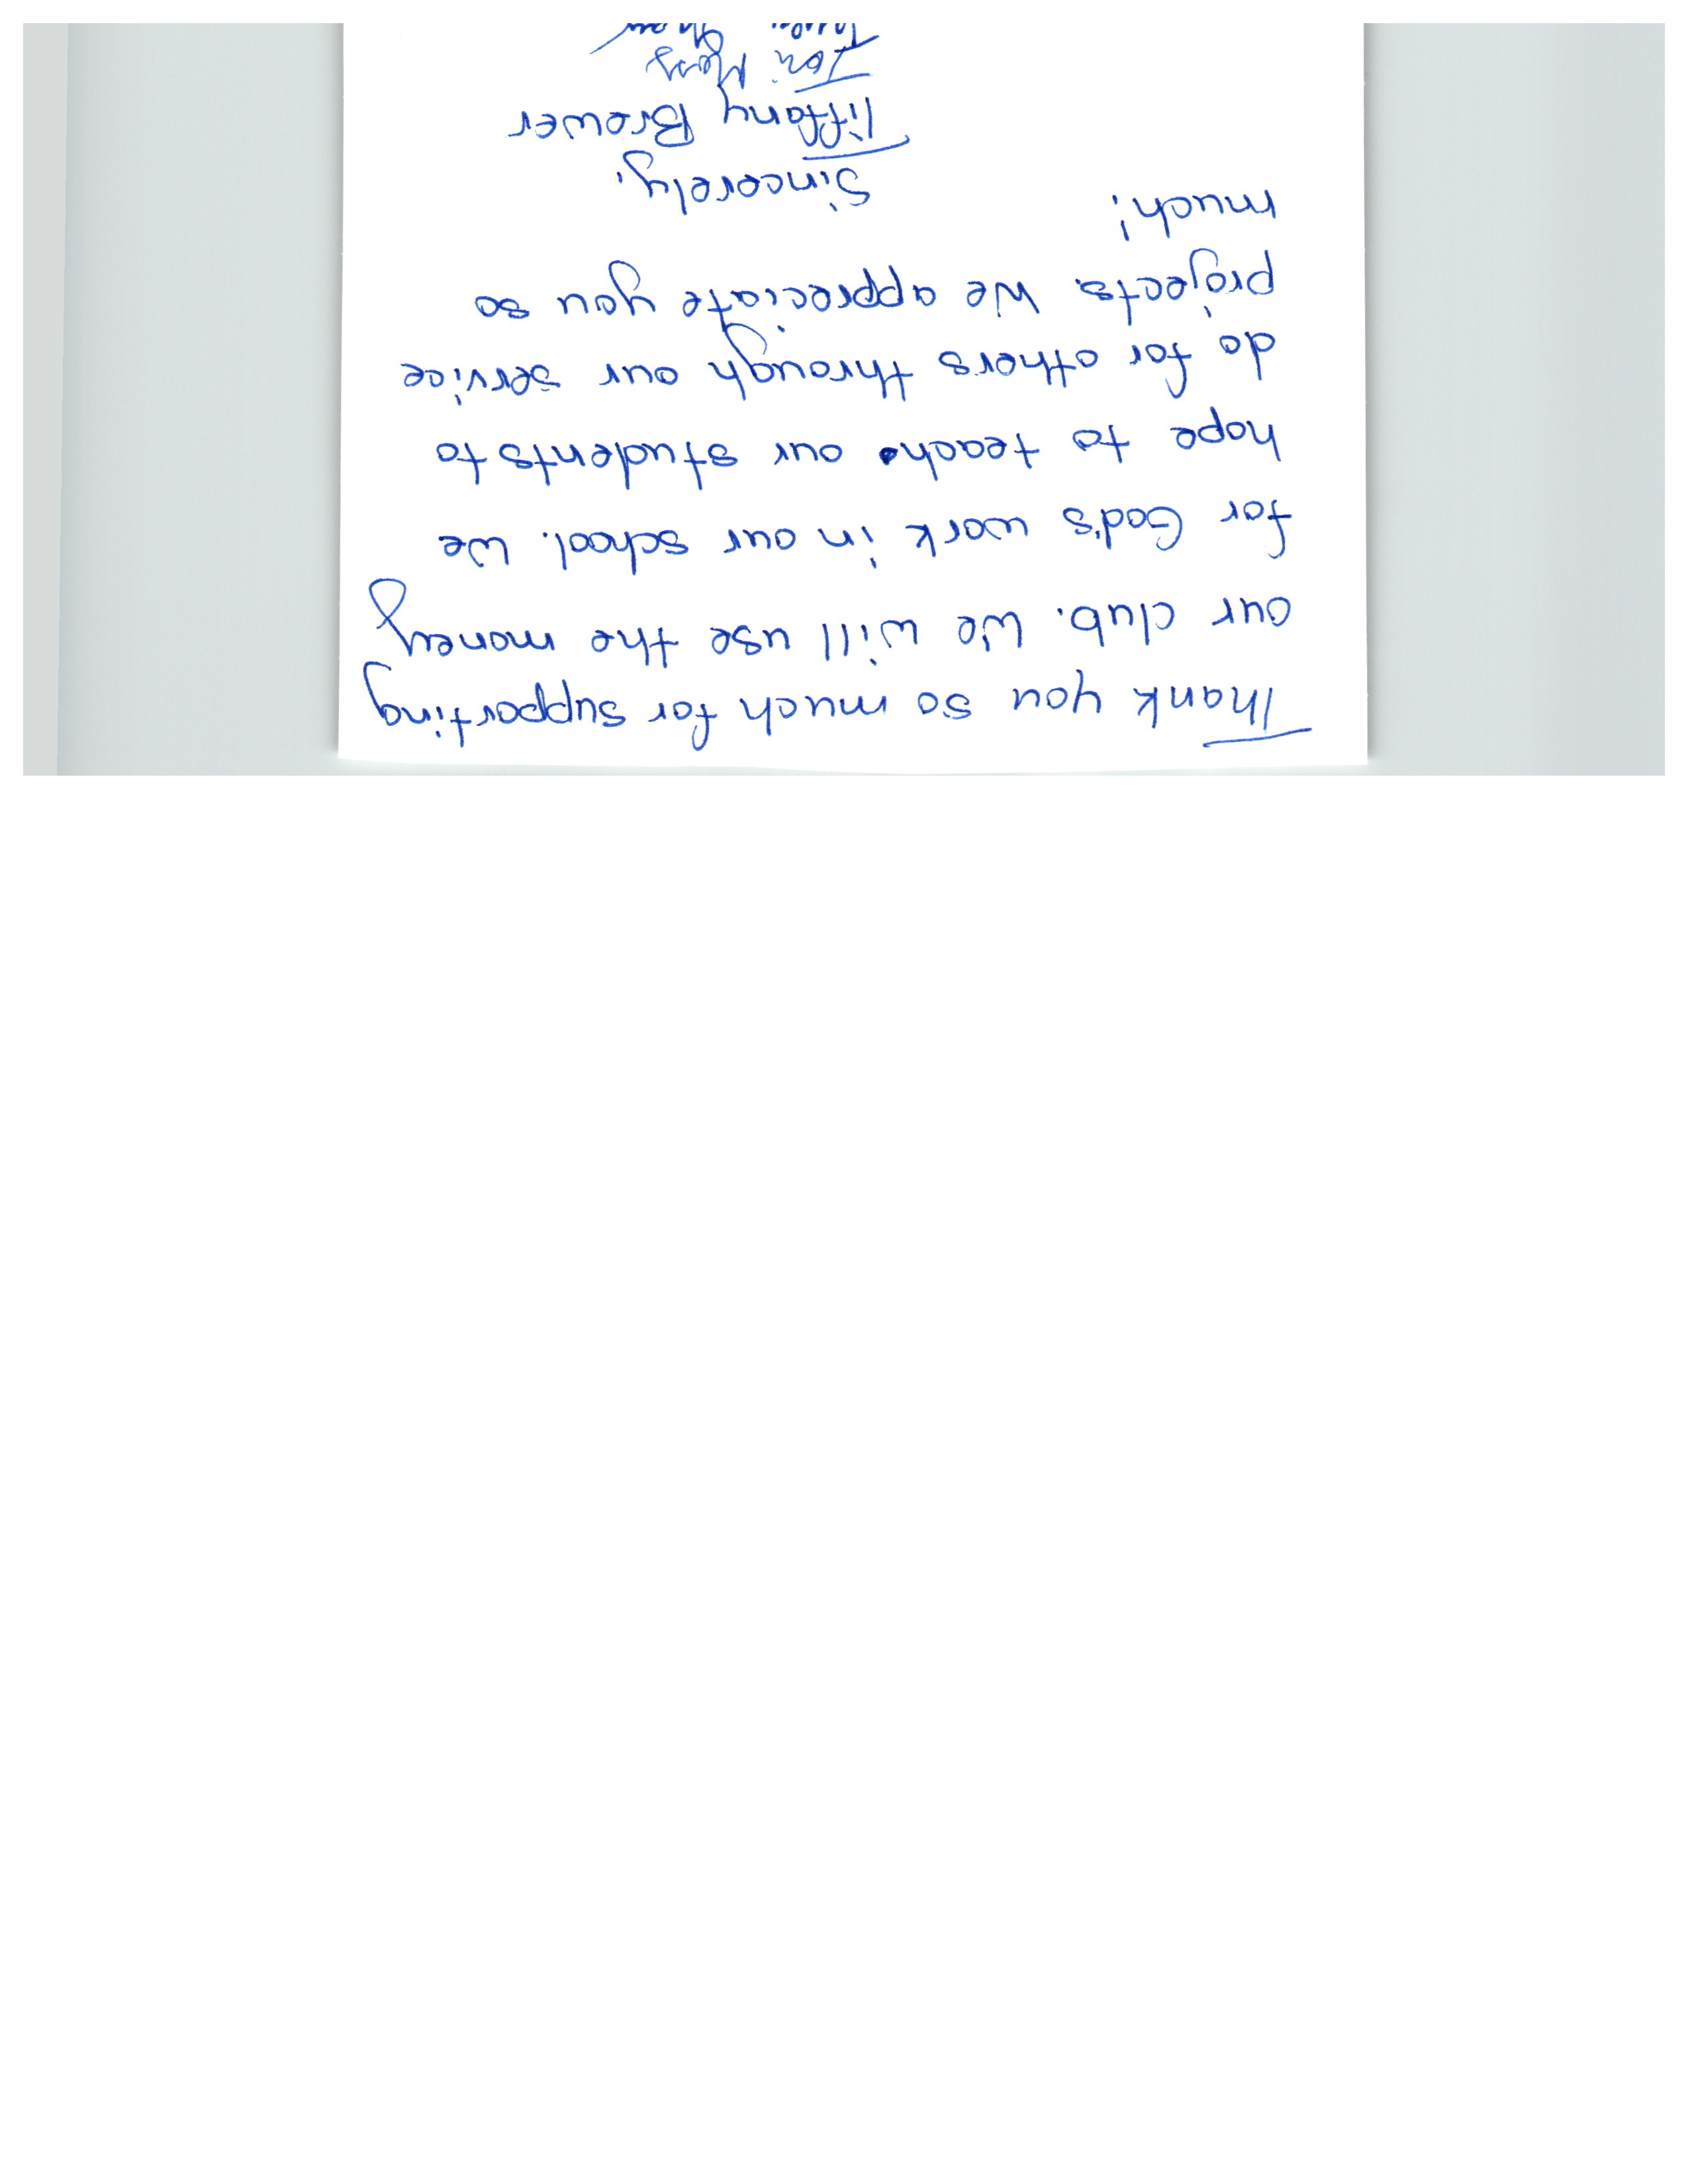 Thank you so much for supporting
our club. We will use the money
for God's work in our school. We
hope to teach our students to
do for others through our service
projects. We appreciate you so
much!
Sincerely,
Tiffany Brower
Tori